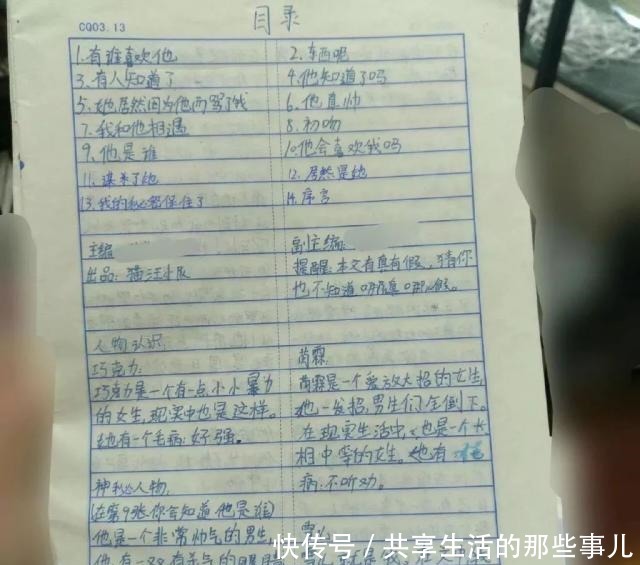 CQ03.13
目录
1.有谁喜欢他
2.东西呢
3.有人知道了
4.他知道了吗
5.她居然因为他而骂了我
6.他真帅
7.我和他相遇
8.初吻
9.他是谁
10.他会喜欢我吗
11.谋杀了她
12.居然是她
13.我的秘密保住了
14.序言
主编
副主编:
出品:猫汪小队
提醒:本文有真有假,猜你
也不知道哪真哪假。
人物认识:
巧克力:
巧克力是一个有一点小小暴力
的女生,现实中也是这样。
她有一个毛病:好强。
神秘人物:
(在第9张,你会知道他是谁)
他是一个非常帅气的男生
他有一双有杀气的眼睛
芮霖:
芮霖是一个爱放大招的女生,
她一发招,男生们全倒下。
在现实生活中,也是一个长
相中等的女生。她有
病:不听劝。
快传号/共享生活的那些事儿